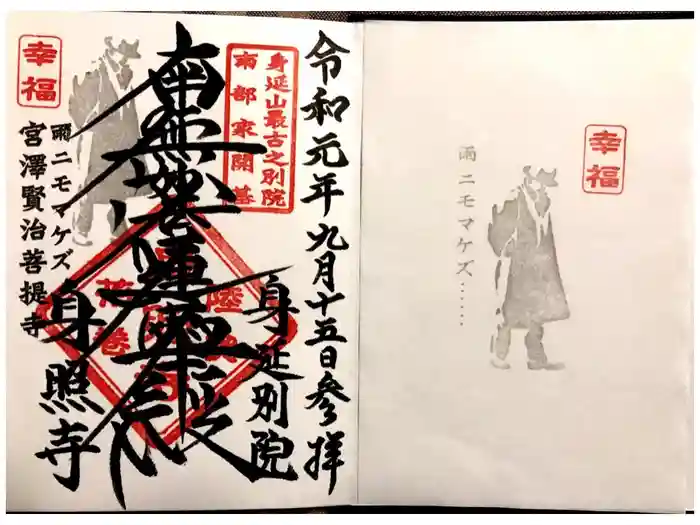 令和元年九月十五日参拝
身延山最古之別院
南部家開基
身延別院
南無妙法蓮華経
幸福
雨ニモマケズ
宮澤賢治菩提寺
身照寺
幸福
雨ニモマケズ……